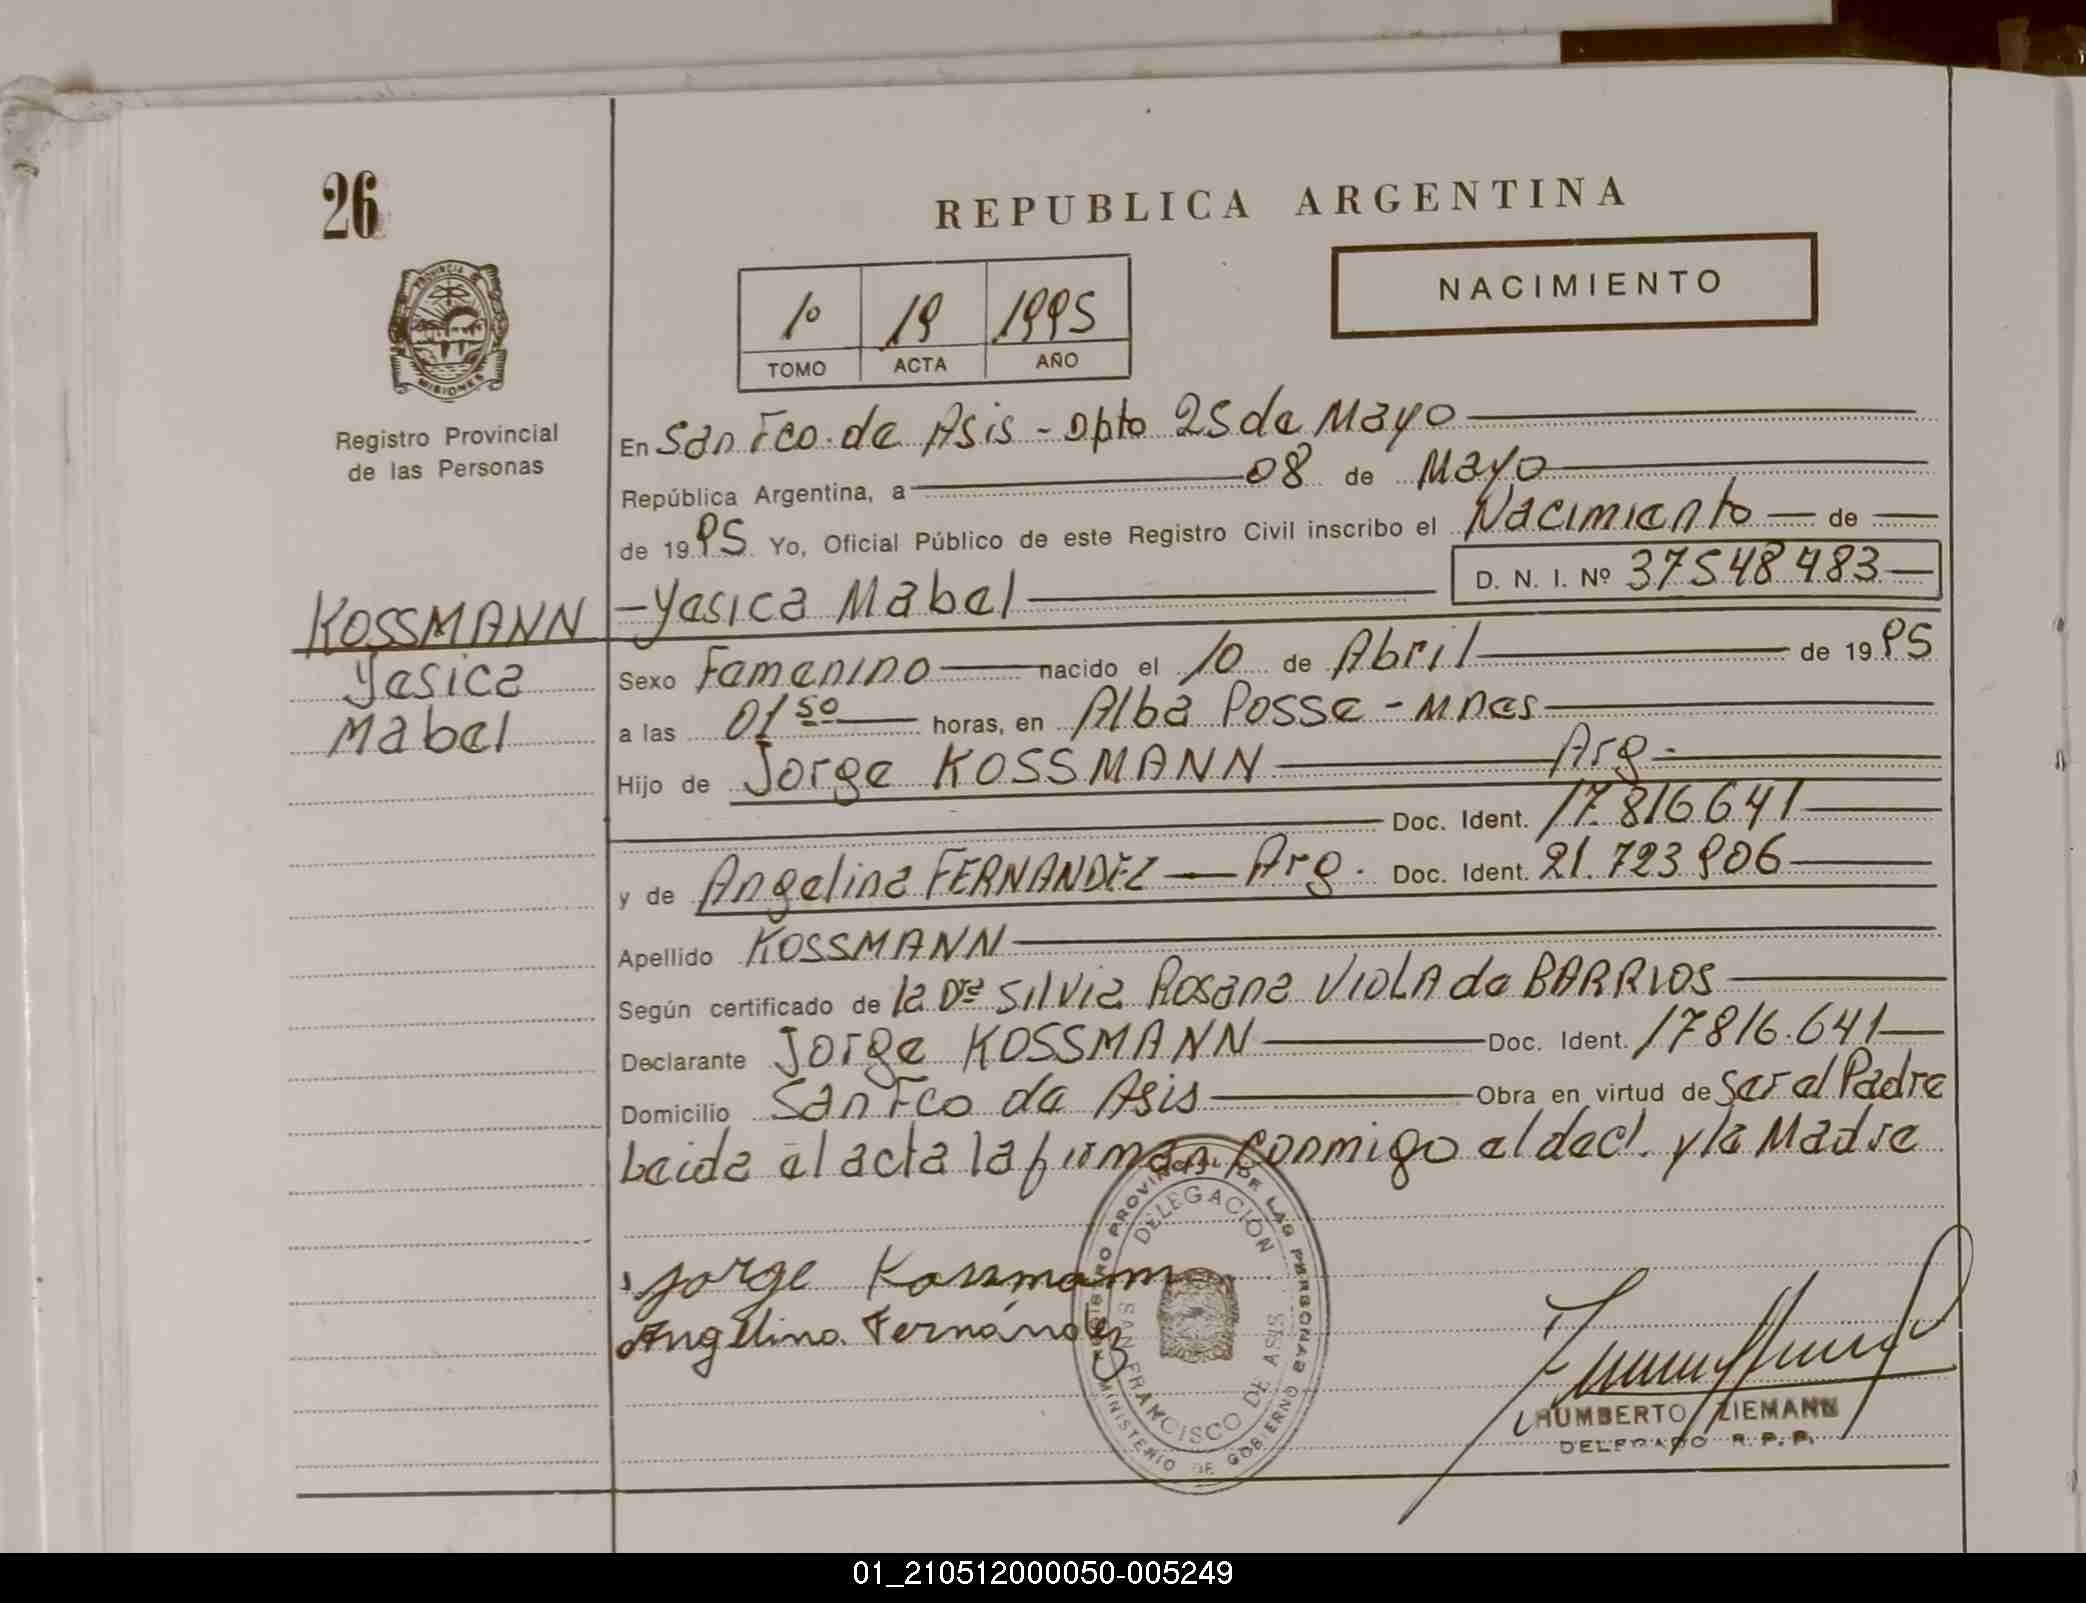 26
REPUBLICA ARGENTINA
NACIMIENTO
1º 19 1995
TOMO ACTA AÑO
PROVINCIA DE
MISIONES
Registro Provincial
de las Personas
KOSSMANN
Yesica
Mabel
En San Fco. de Asis - Dpto 25 de Mayo
República Argentina, a 08 de Mayo
de 1995 Yo, Oficial Público de este Registro Civil inscribo el Nacimiento de
Yesica Mabel D. N. I. Nº 37548483
Sexo Femenino nacido el 10 de Abril de 1995
a las 01 50 horas, en Alba Posse - Mnes
Hijo de Jorge KOSSMANN Arg.
Doc. Ident. 17.816641
y de Angelina FERNANDEZ Arg. Doc. Ident. 21.723906
Apellido KOSSMANN
Según certificado de la Dra Silvia Rosana VIOLA de BARRIOS
Declarante Jorge KOSSMANN Doc. Ident. 17816.641
Domicilio San Fco de Asis Obra en virtud de Ser el Padre
Leida el acta la firman conmigo el decl. y la Madre
Jorge Kossmann
Angelina Fernández
REGISTRO PROVINCIAL DE LAS PERSONAS
DELEGACIÓN
SAN FRANCISCO DE ASIS
MINISTERIO DE GOBIERNO
HUMBERTO ZIEMANN
DELEGADO R. P. P.
01_210512000050-005249